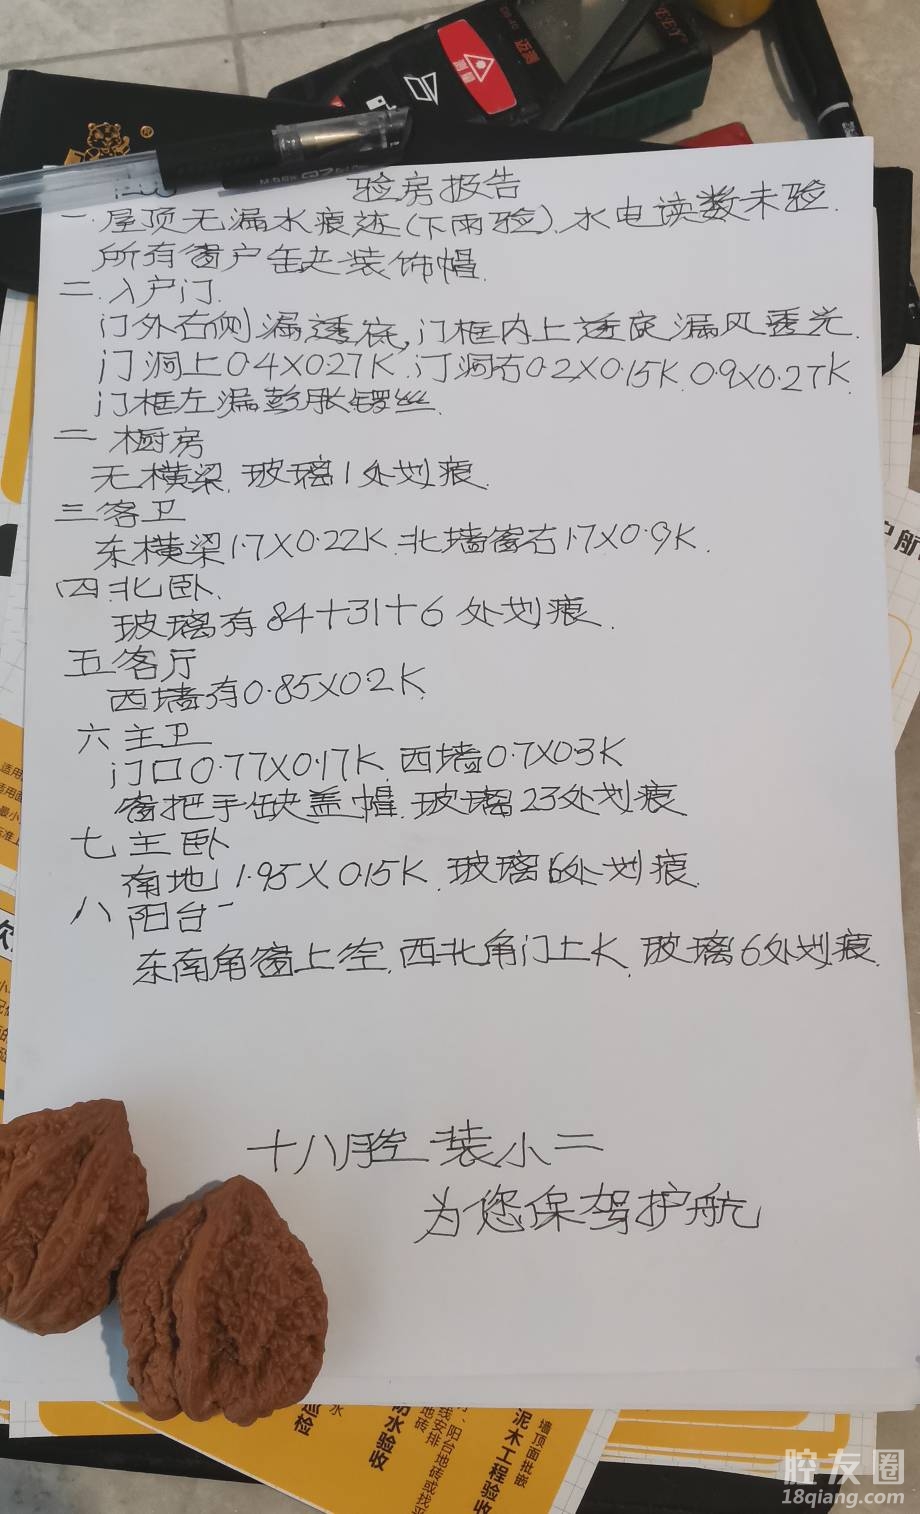 测量
迈测
验房报告
一.屋顶无漏水痕迹(下雨验).水电读数未验.
所有窗户缶夬装饰帽.
二.入户门.
门外右侧漏透底,门框内上透底漏风透光.
门洞上0.4X0.27K.门洞右0.2X0.15K.0.9X0.27K
门框左漏膨胀锣丝.
二 橱房
无横梁.玻璃1处划痕.
三客卫
东横梁1.7X0.22K.北墙窗右1.7X0.9K.
四.北卧.
玻璃有84+31+6处划痕.
五客厅
西墙有0.85X0.2K.
六主卫
门口0.77X0.17K.西墙0.7X0.3K
窗把手缺盖帽.玻璃23处划痕
七主卧
南地1.95X0.15K.玻璃6处划痕.
八阳台
东南角窗上空.西北角门上K.玻璃6处划痕.
十八腔装小二
为您保驾护航
护航
水验收
泥木工程验收
墙顶面批嵌
腔友圈
18qiang.com